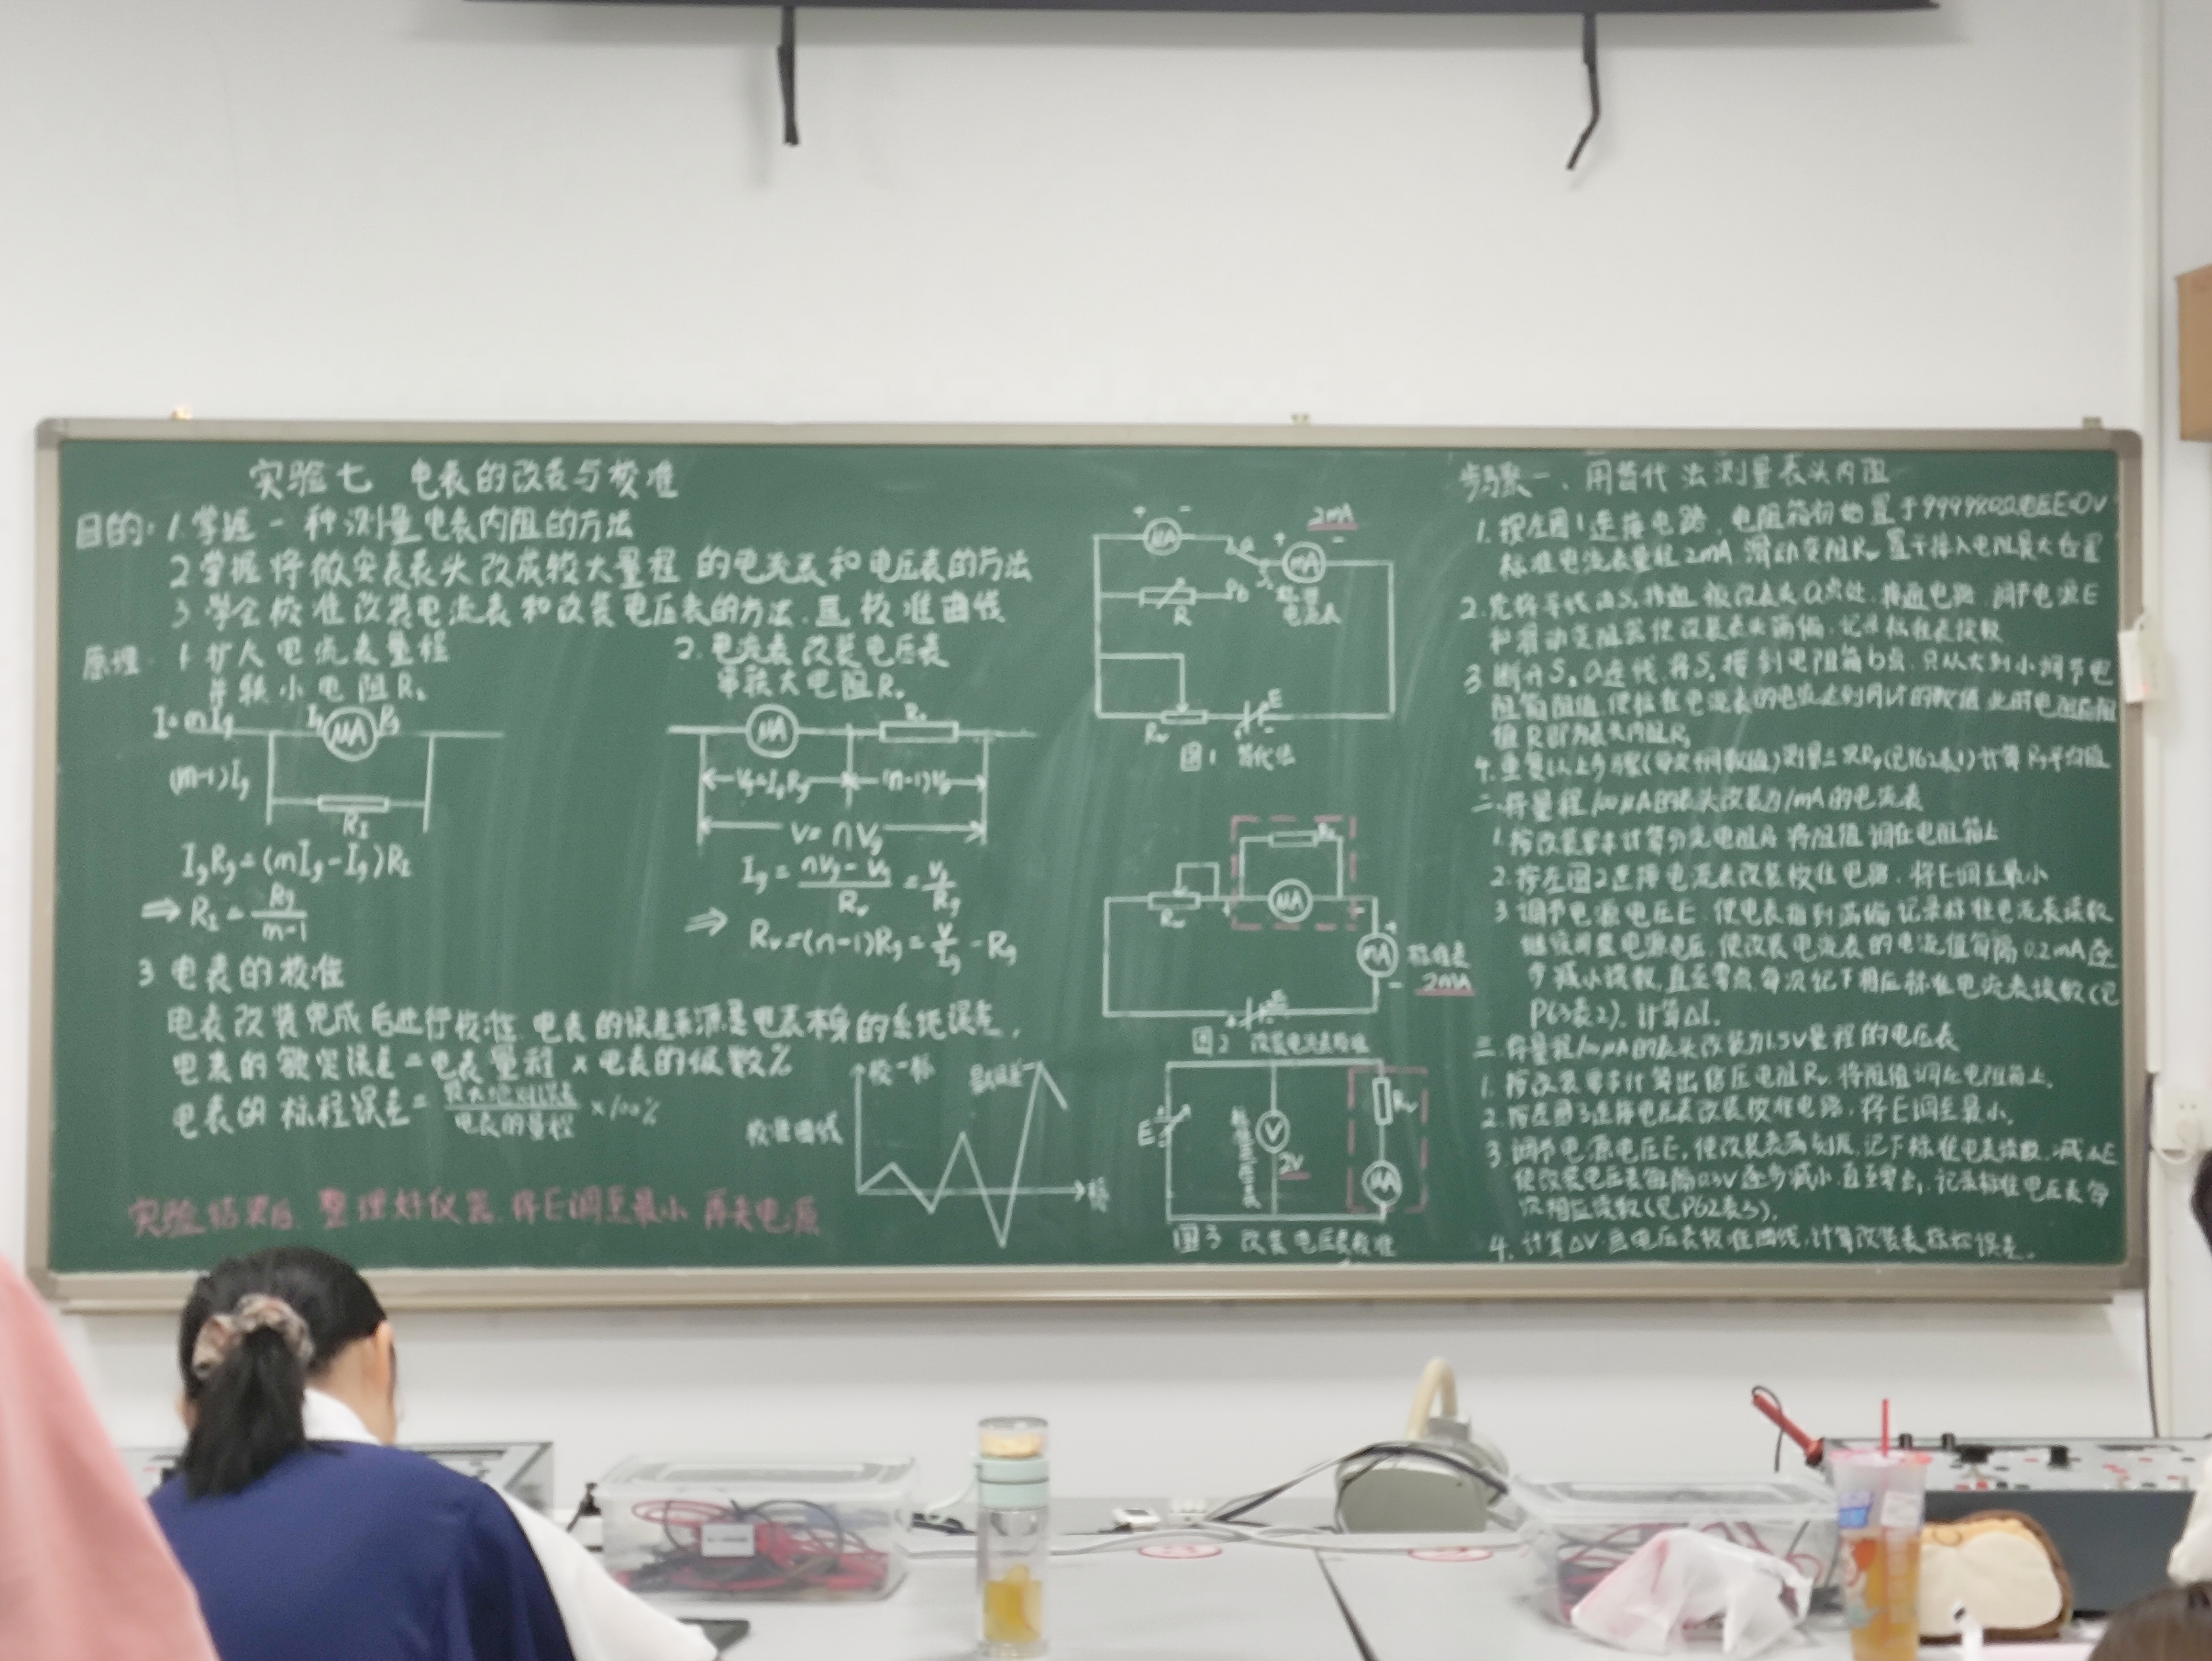 实验七 电表的改装与校准
目的: 1.掌握一种测量电表内阻的方法
2 掌握将微安表表头改成较大量程的电流表和电压表的方法
3 学会校准改装电流表和改装电压表的方法,画校准曲线
原理. 1.扩大电流表量程
并联小电阻R
I=mIg Ig μA Rg
(m-1)Ig
RI
IgRg=(mIg-Ig)RI
⇒ RI=Rg/(m-1)
2. 电流表改装电压表
串联大电阻Rv
μA Rv
Vg=IgRg (n-1)Vg
V=nVg
Ig=(nVg-Vg)/Rv=Vg/Rg
⇒ Rv=(n-1)Rg=V/Ig-Rg
3 电表的校准
电表改装完成后进行校准,电表的误差来源是电表本身的系统误差.
电表的额定误差=电表量程×电表的级数%
电表的标程误差=最大绝对误差/电表的量程×100%
校准曲线
最大误差
实验结束后,整理好仪器,将E调至最小,再关电源
+ μA - a + mA - 2mA
R b S 标准电流表
Rw E
图1 替代法
Rw + μA -
+ mA - 标准表 2mA
+ E
图2 改装电流表校准
E V 2V Rv μA
图3 改装电压表校准
步骤一、用替代法测量表头内阻
1. 按左图1连接电路,电阻箱初始置于
标准电流表量程2mA,滑动变阻Rw置于接入电阻最大位置
2. 先将导线由S,接通被改表头a点处,接通电路,调节电源E
和滑动变阻器使改装表头满偏,记录标准表读数
3 断开S,a连线,将S,接到电阻箱b点,只从大到小调节电
阻箱阻值,使标准电流表的电流达到同样的数值,此时电阻箱阻
值R即为表头内阻Rg
4. 重复以上步骤测量三次Rg计算Rg平均值
二、将量程100μA的表头改装为1mA的电流表
1. 按改装要求计算分流电阻,将阻值调在电阻箱上
2. 按左图2连接电流表改装校准电路,将E调至最小
3 调节电源电压E,使电表指到满偏,记录标准电流表读数
继续调整电源电压,使改装电流表的电流值每隔0.2mA逐
步减小读数,直至零点,每次记下相应标准电流表读数(见
表2),计算ΔI.
三、将量程100μA的表头改装为1.5V量程的电压表
1. 按改装要求计算出倍压电阻Rv,将阻值调在电阻箱上.
2. 按左图3连接电压表改装校准电路,将E调至最小.
3. 调节电源电压E,使改装表满刻度,记下标准电表读数,减小E
使改装电压表每隔0.3V逐步减小,直至零点,记录标准电压表每
次相应读数(见P62表3).
4. 计算ΔV,画电压表校准曲线,计算改装表标称误差.